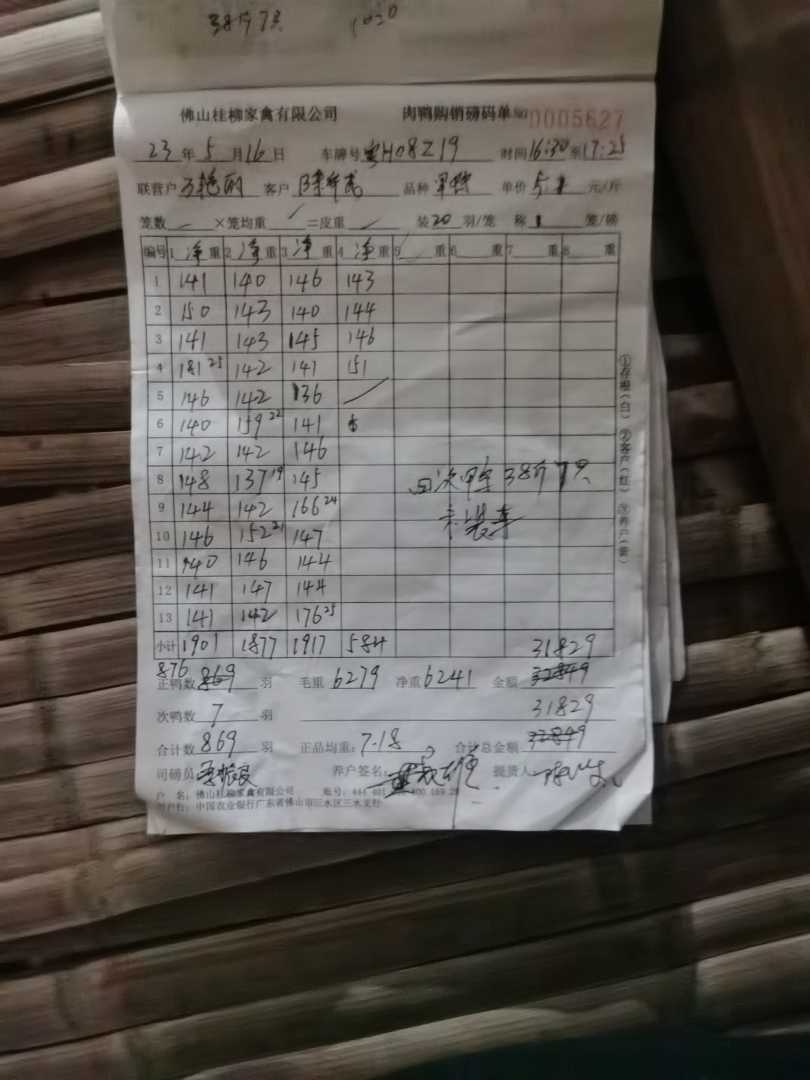 38斤7只 1020
佛山桂柳家禽有限公司 肉鸭购销磅码单 № 0005627
23 年 5 月 16 日 车牌号 H08Z19 时间 16:30 至 17:25
联营户 客户 品种 单价 5.1 元/斤
笼数 × 笼均重 = 皮重 装 20 羽/笼 称 1 笼/磅
编号 1 净 重 2 净 重 3 净 重 4 净 重 5 重 6 重 7 重 8 重
1 141 140 146 143
2 150 143 140 144
3 141 143 145 146
4 181 25 142 141 151
5 146 142 136
6 140 159 22 141
7 142 142 146
8 148 137 19 145
9 144 142 166 24
10 146 152 21 147
11 140 146 144
12 141 147 144
13 141 142 176 25
四次甲字 38斤7只
未装车
小计 1901 1877 1917 584 31829
876
正鸭数 869 羽 毛重 6279 净重 6241 金额 32849
次鸭数 7 羽 31829
合计数 869 羽 正品均重: 7.18 合计总金额 32849
司磅员 养户签名: 提货人
户 名: 佛山桂柳家禽有限公司 账号:
开户行: 中国农业银行广东省佛山市三水区三水支行
①存根(白) ②客户(红) ③养户(黄)